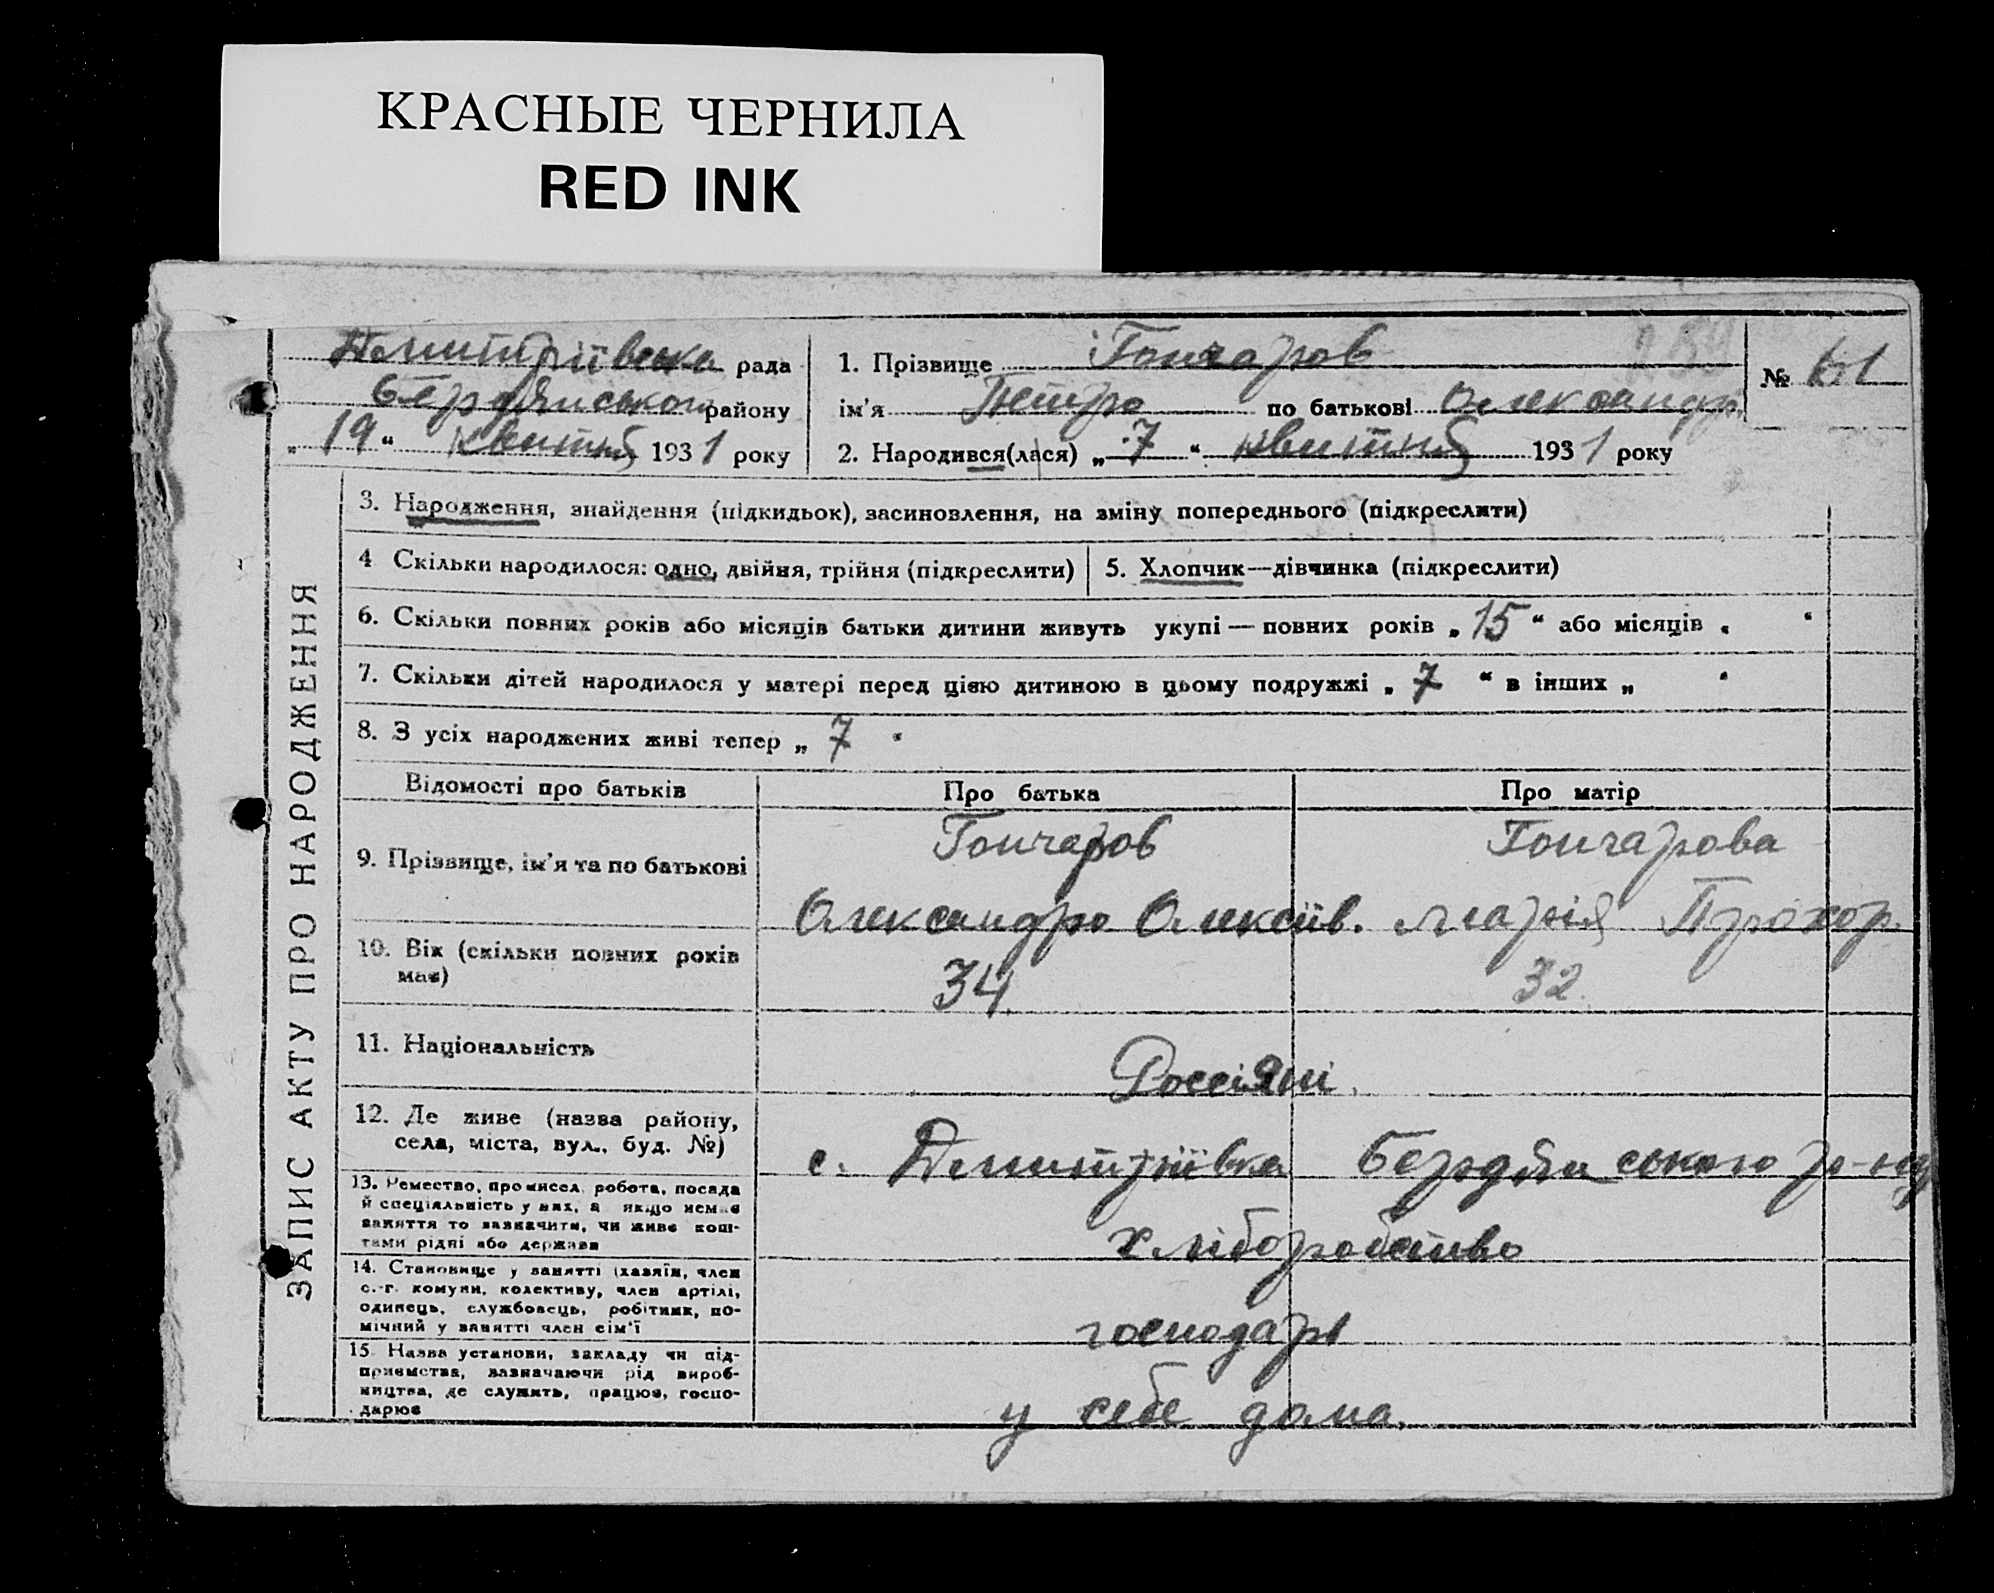 КРАСНЫЕ ЧЕРНИЛА
RED INK
Дмитріївська рада
Бердянського району
„ 19 “ квітня 1931 року
1. Прізвище Гончаров
ім’я Петро по батькові Олександр.
2. Народився(лася) „ 7 “ квітня 1931 року
№ 61
ЗАПИС АКТУ ПРО НАРОДЖЕННЯ
3. Народження, знайдення (підкидьок), засиновлення, на зміну попереднього (підкреслити)
4 Скільки народилося: одно, двійня, трійня (підкреслити)
5. Хлопчик—дівчинка (підкреслити)
6. Скільки повних років або місяців батьки дитини живуть укупі — повних років „ 15 “ або місяців „ “
7. Скільки дітей народилося у матері перед цією дитиною в цьому подружжі „ 7 “ в інших „ “
8. З усіх народжених живі тепер „ 7 “
Відомості про батьків
Про батька
Про матір
9. Прізвище, ім’я та по батькові
Гончаров
Олександро Олексіїв.
Гончарова
Марія Прохор.
10. Вік (скільки повних років
має)
34
32
11. Національність
Россіяні
12. Де живе (назва району,
села, міста, вул., буд. №)
с. Дмитріївка Бердянського р-ну
13. Ремество, промисел, робота, посада
й спеціяльність у них, а якщо немає
заняття то зазначити, чи живе кош-
тами рідні або держави
хліборобство
14. Становище у занятті (хазяїн, член
с.-г. комуни, колективу, член артілі,
одинець, службовець, робітник, по-
мічний у занятті член сім’ї
господарь
15. Назва установи, закладу чи під-
приємства, зазначаючи рід вироб-
ництва, де служить, працює, госпо-
дарює
у себе дома.